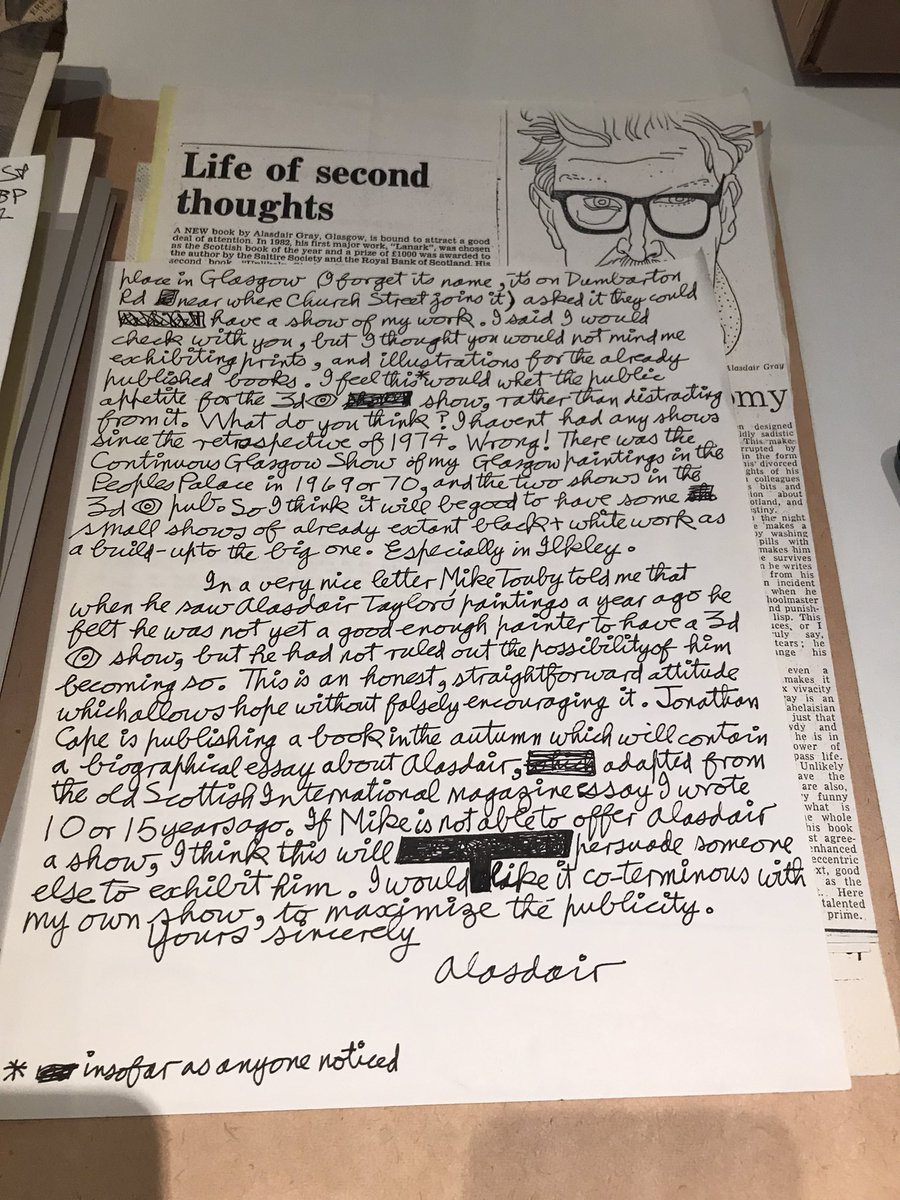 Life of second
thoughts
A NEW book by Alasdair Gray, Glasgow, is bound to attract a good
deal of attention. In 1982, his first major work, “Lanark”, was chosen
as the Scottish book of the year and a prize of £1000 was awarded to
the author by the Saltire Society and the Royal Bank of Scotland. His
place in Glasgow (I forget its name, its on Dumbarton
Rd near where Church Street joins it) asked if they could
have a show of my work. I said I would
check with you, but I thought you would not mind me
exhibiting prints, and illustrations for the already
published books. I feel this* would whet the public
appetite for the 3d show, rather than distracting
from it. What do you think? I havent had any shows
since the retrospective of 1974. Wrong! There was the
Continuous Glasgow Show of my Glasgow paintings in the
Peoples Palace in 1969 or 70, and the two shows in the
3d pub. So I think it will be good to have some
small shows of already extant black + white work as
a build-up to the big one. Especially in Ilkley.
In a very nice letter Mike Touby told me that
when he saw Alasdair Taylors paintings a year ago he
felt he was not yet a good enough painter to have a 3d
show, but he had not ruled out the possibility of him
becoming so. This is an honest, straightforward attitude
which allows hope without falsely encouraging it. Jonathan
Cape is publishing a book in the autumn which will contain
a biographical essay about Alasdair, adapted from
the old Scottish International magazine essay I wrote
10 or 15 years ago. If Mike is not able to offer Alasdair
a show, I think this will persuade someone
else to exhibit him. I would like it co-terminous with
my own show, to maximize the publicity.
Yours sincerely
Alasdair
* insofar as anyone noticed
Alasdair Gray
my
designed
sadistic
This make-
rupted by
in the form
divorced
ghts of his
colleagues
bits and
about
otland, and
the night
makes a
by washing
pills with
makes him
survives
he writes
from his
incident
when he
hoolmaster
and punish-
lisp. This
or I
say,
tears; he
his
even a
makes it
vivacity
is an
just that
and
he is in
ower of
pass life.
Unlikely
ave the
are also,
funny
what is
whole
his book
agree-
enhanced
eccentric
good
as the
Here
talented
prime.